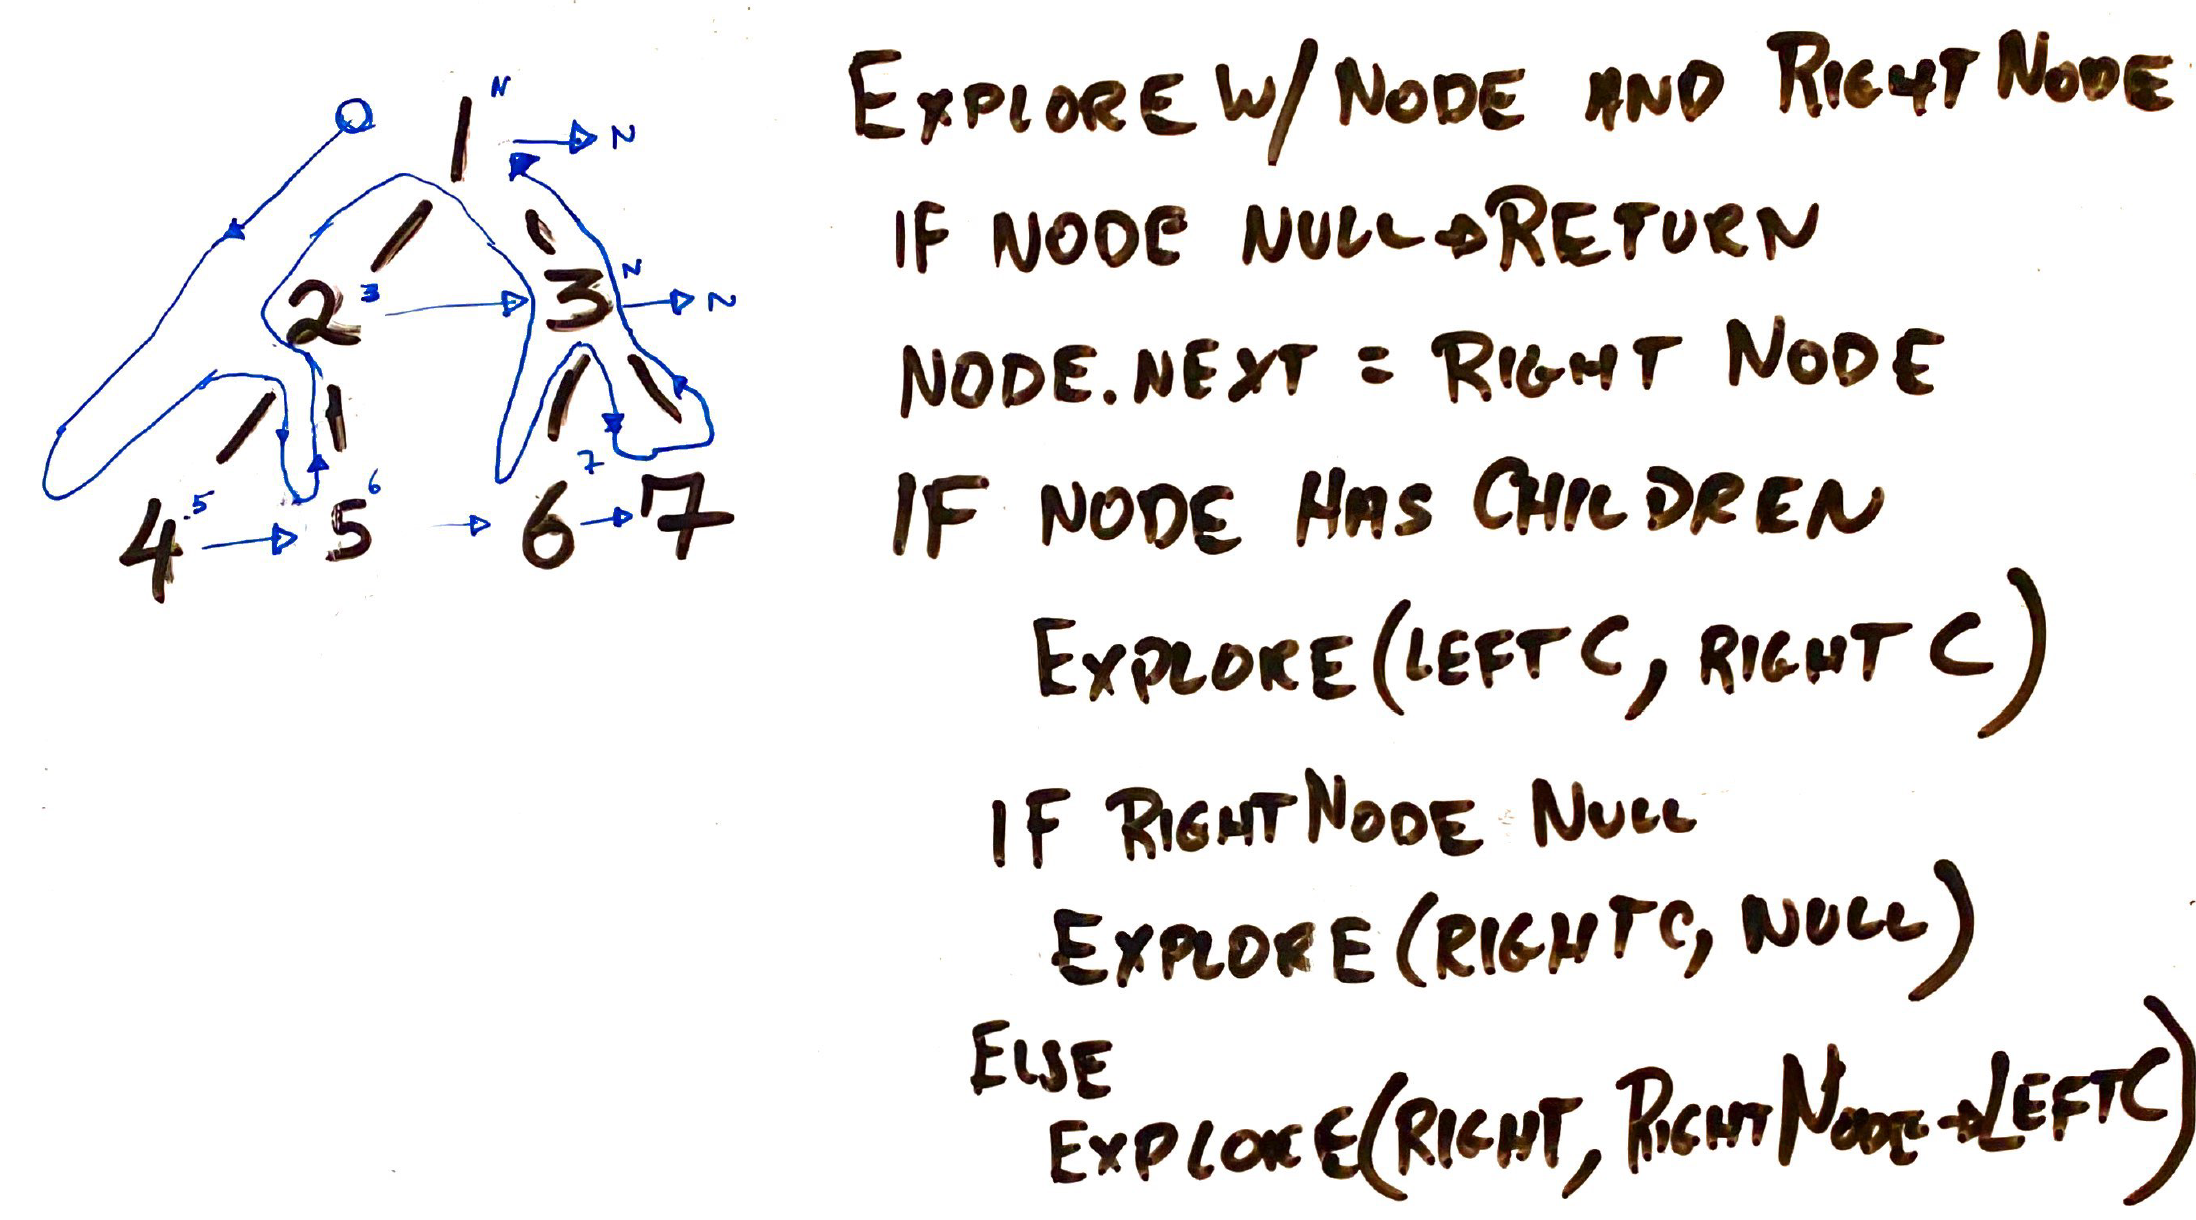 N
1 → N
2 3 → 3 N → N
7
4 5 → 5 6 → 6 → 7
EXPLORE W/ NODE AND RIGHT NODE
IF NODE NULL → RETURN
NODE.NEXT = RIGHT NODE
IF NODE HAS CHILDREN
EXPLORE (LEFT C, RIGHT C)
IF RIGHT NODE NULL
EXPLORE (RIGHT C, NULL)
ELSE
EXPLORE (RIGHT, RIGHT NODE → LEFT C)